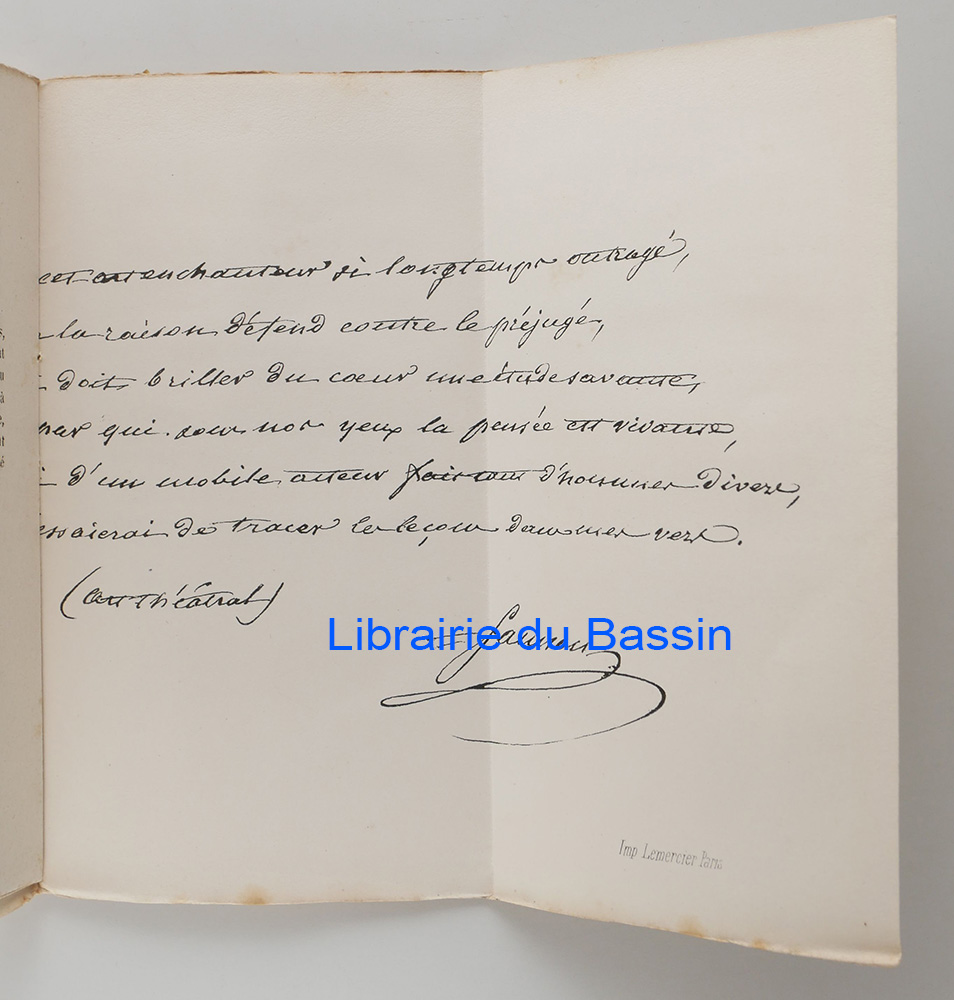 cet art enchanteur si longtemps outragé,
la raison défend contre le préjugé,
doit briller du cœur une étude savante,
par qui sous nos yeux la pensée est vivante,
d'un mobile acteur fait tant d'hommes divers,
essaierai de tracer les leçons dans mes vers.
(art théâtral)
Librairie du Bassin
Imp Lemercier Paris
s,
nt
u
à
e,
nt
é